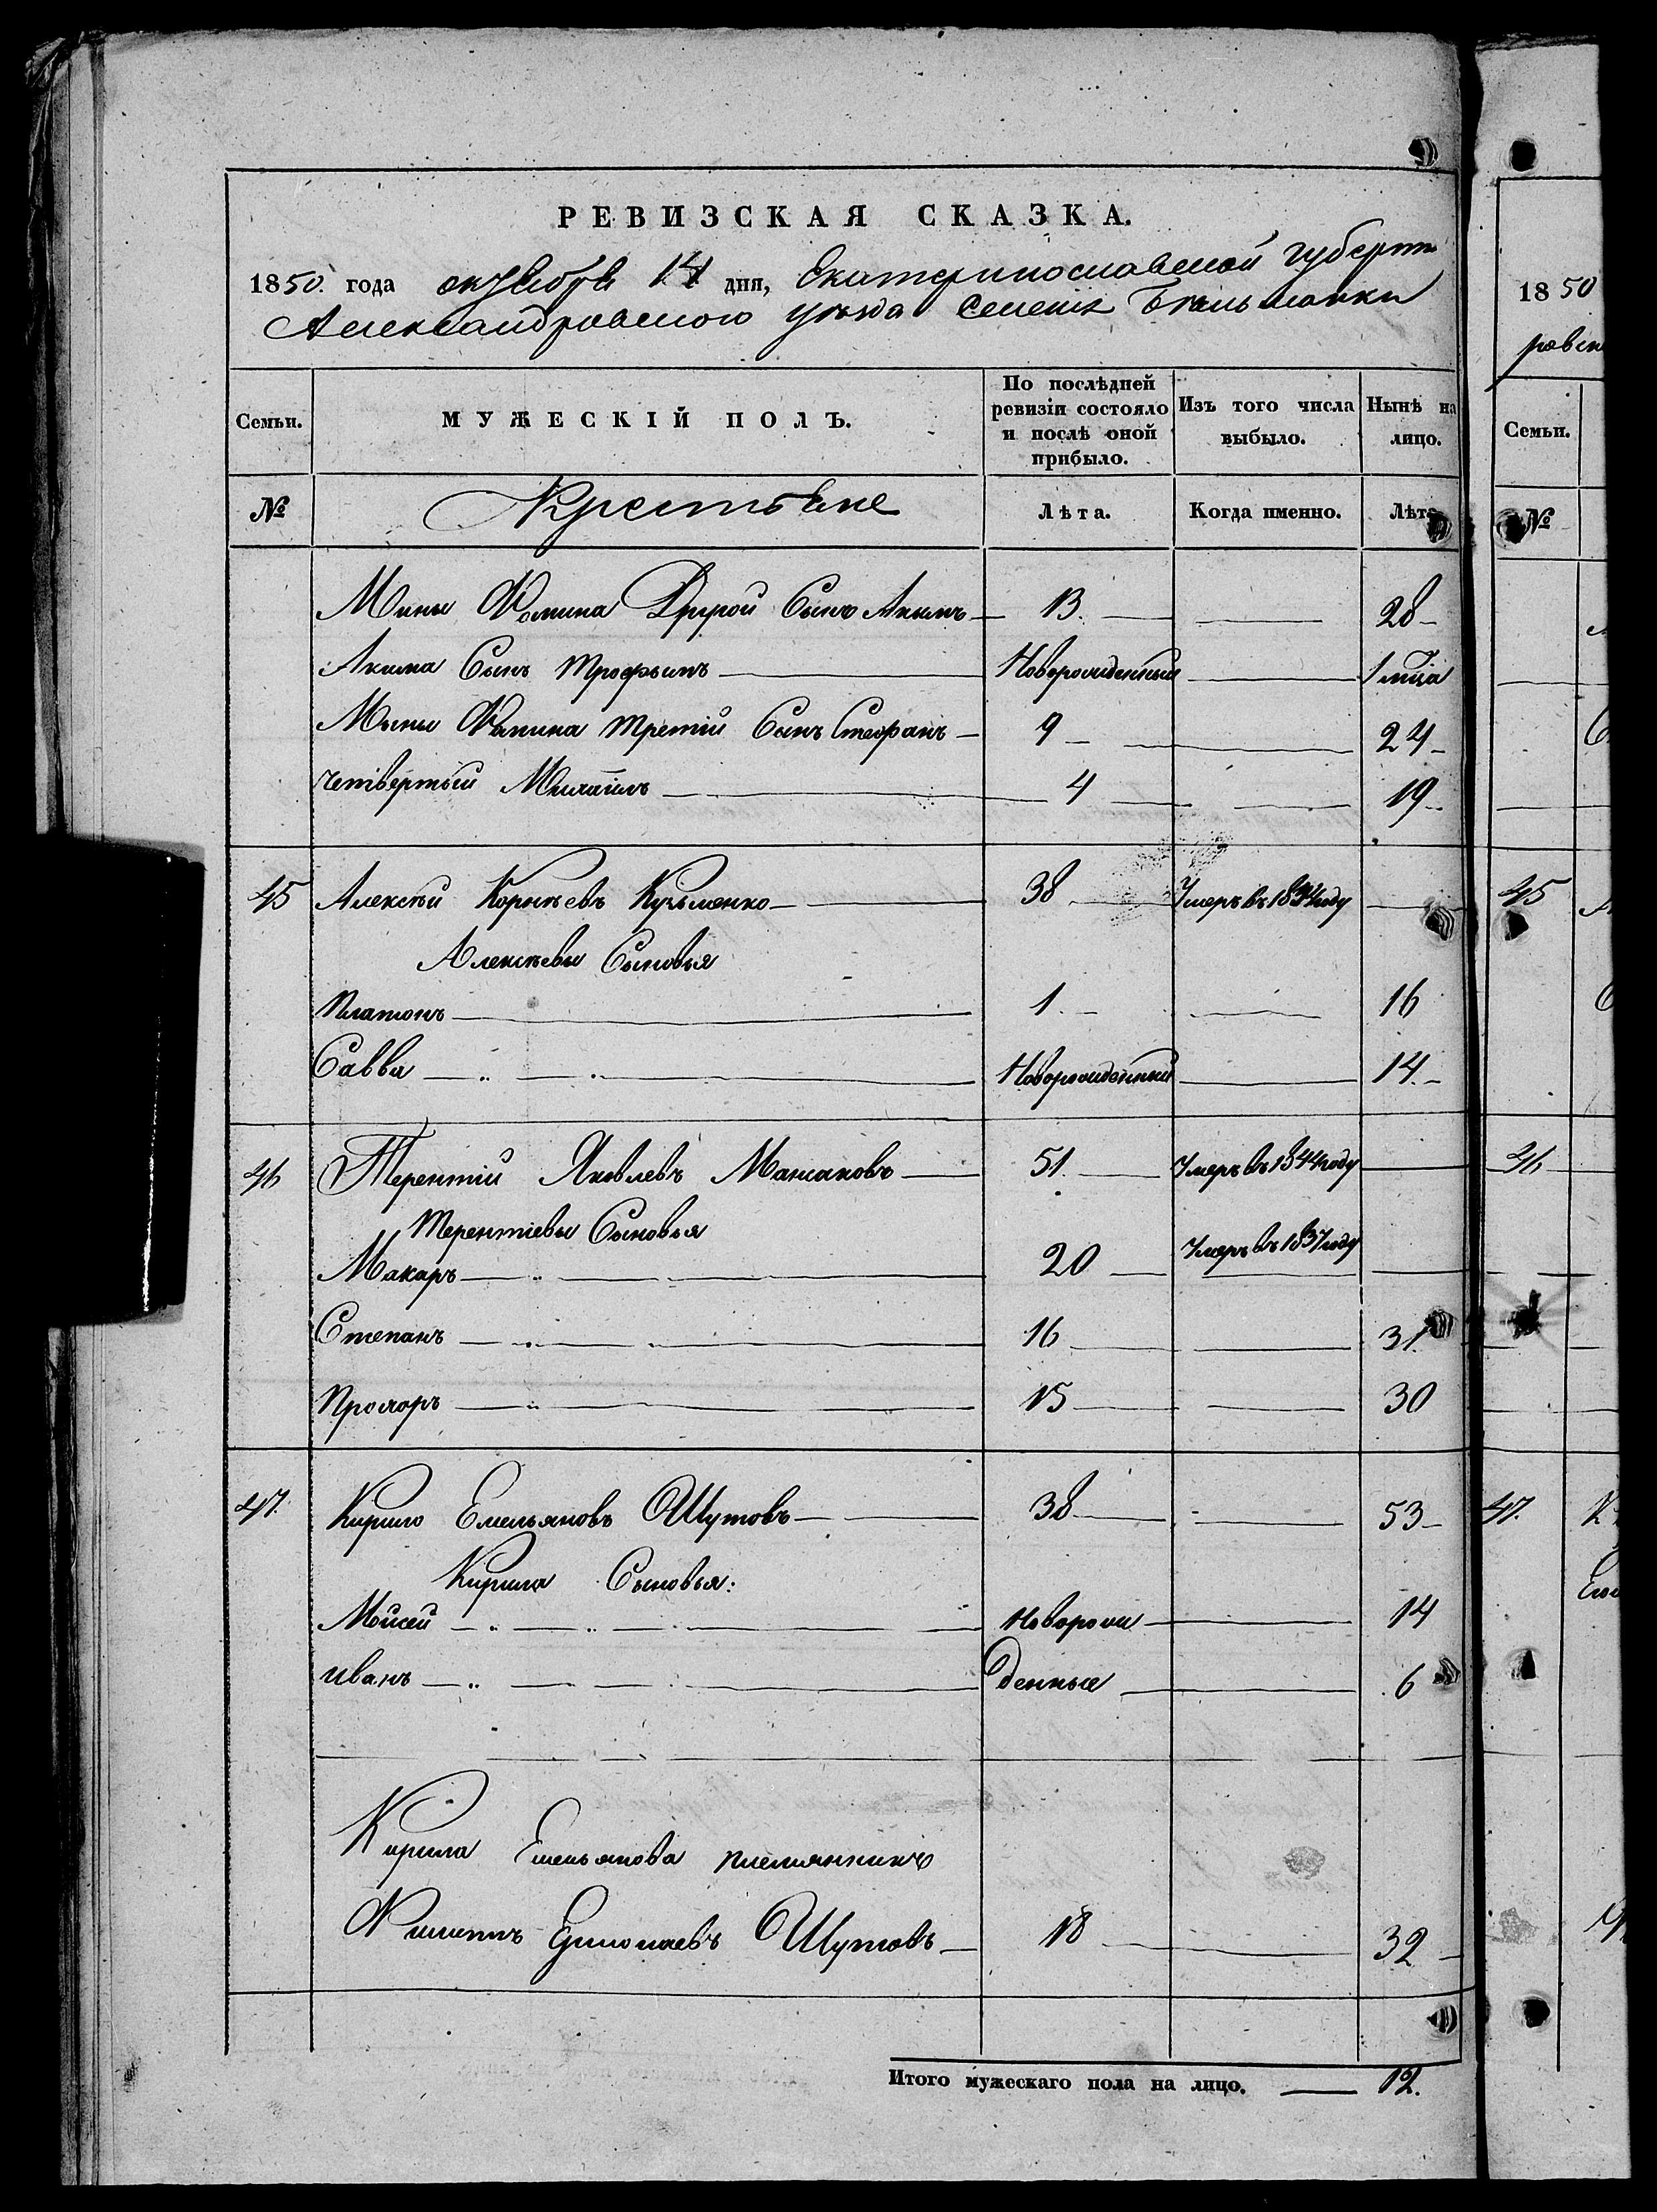 РЕВИЗСКАЯ СКАЗКА.
1850. года октября 14 дня, Екатеринославской губерніи
Александровского уѣзда Селенія Бѣльманки
Семьи. МУЖЕСКІЙ ПОЛЪ. По послѣдней ревизіи состояло и послѣ оной прибыло. Изъ того числа выбыло. Нынѣ на лицо.
№ Крестьяне Лѣта. Когда именно. Лѣта
Мины Фомина Другой Сынъ Акимъ 13. 28
Акима Сынъ Трофимъ Новорожденный 1 мца
Мины Фомина третій Сынъ Стефанъ 9 24
четвертый Михаилъ 4 19
45 Алексѣй Корнѣевъ Кузьменко 38 Умеръ въ 1834 году
Алексѣевы Сыновья
Платонъ 1. 16
Савва Новорожденный 14.
46 Терентій Яковлевъ Мажаковъ 51. Умеръ въ 1844 году
Терентіевы Сыновья
Макаръ 20 Умеръ въ 1837 году
Степанъ 16 31.
Прохоръ 15 30
47. Кирило Емельяновъ Шутовъ 38 53
Кирила Сыновья:
Мойсей Новорож 14
Иванъ денные 6
Кирила Емельянова племянникъ
Филипъ Ермолаевъ Шутовъ 18 32
Итого мужескаго пола на лицо. 12.
1850
ровск
Семьи.
№
45
46
47.